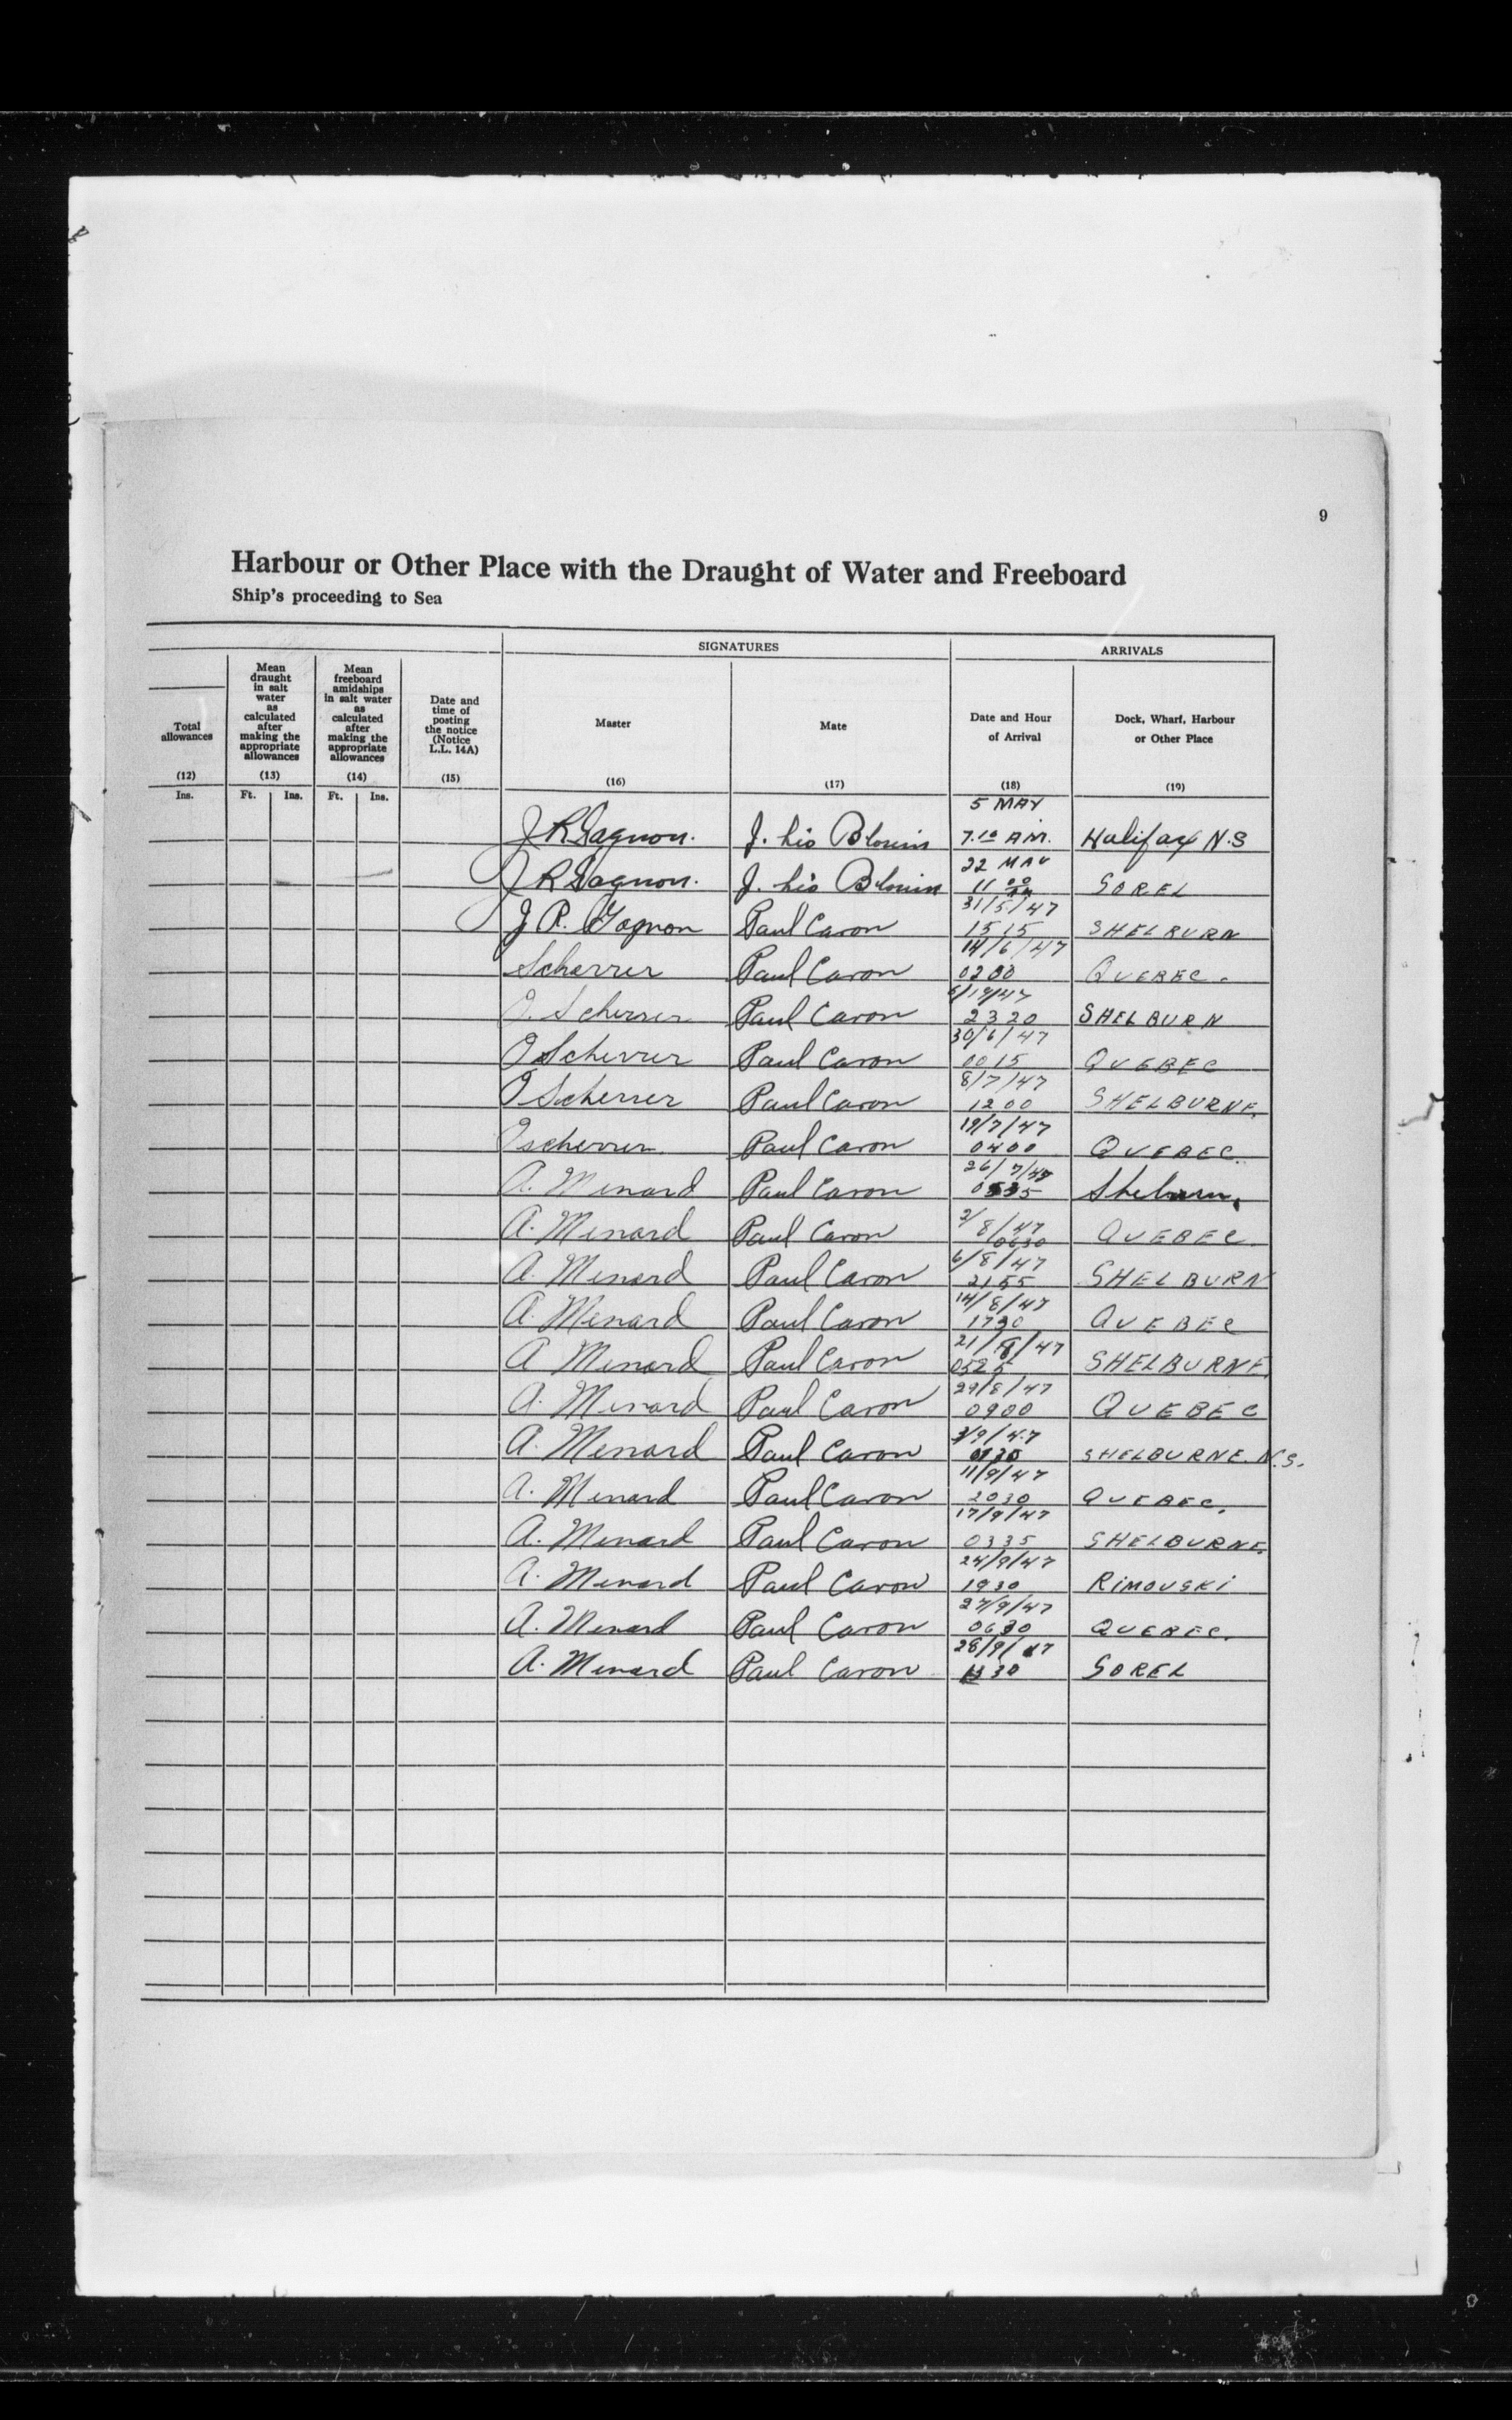 9
Harbour or Other Place with the Draught of Water and Freeboard
Ship's proceeding to Sea
SIGNATURES ARRIVALS
Total allowances Mean draught in salt water as calculated after making the appropriate allowances Mean freeboard amidships in salt water as calculated after making the appropriate allowances Date and time of posting the notice (Notice L.L. 14A) Master Mate Date and Hour of Arrival Dock, Wharf, Harbour or Other Place
(12) (13) (14) (15) (16) (17) (18) (19)
Ins. Ft. Ins. Ft. Ins.
5 MAY
J R Gagnon. J. Blouin 7.10 A.M. Halifax N.S
22 MAY
J R Gagnon. J. Blouin 11 00 SOREL
31/5/47
J R. Gagnon Paul Caron 1515 SHELBURN
14/6/47
Scherrer Paul Caron 0200 QUEBEC.
6/19/47
O. Scherrer Paul Caron 2320 SHELBURN
30/6/47
O Scherrer Paul Caron 0015 QUEBEC
8/7/47
O Scherrer Paul Caron 1200 SHELBURNE.
19/7/47
O scherrer Paul Caron 0400 QUEBEC.
26/7/47
A. Menard Paul Caron Shelburn.
2/8/47
A. Menard Paul Caron 0630 QUEBEC.
6/8/47
A. Menard Paul Caron 2155 SHELBURN
14/8/47
A. Menard Paul Caron 1730 QUEBEC
21/8/47
A Menard Paul Caron 0525 SHELBURNE.
29/8/47
A. Menard Paul Caron 0900 QUEBEC
3/9/47
A. Menard Paul Caron SHELBURNE. N.S.
11/9/47
A. Menard Paul Caron 2030 QUEBEC.
17/9/47
A. Menard Paul Caron 0335 SHELBURNE.
24/9/47
A. Menard Paul Caron 1930 RiMOUSKi
27/9/47
A. Menard Paul Caron 0630 QUEBEC.
28/9/47
A. Menard Paul Caron SOREL